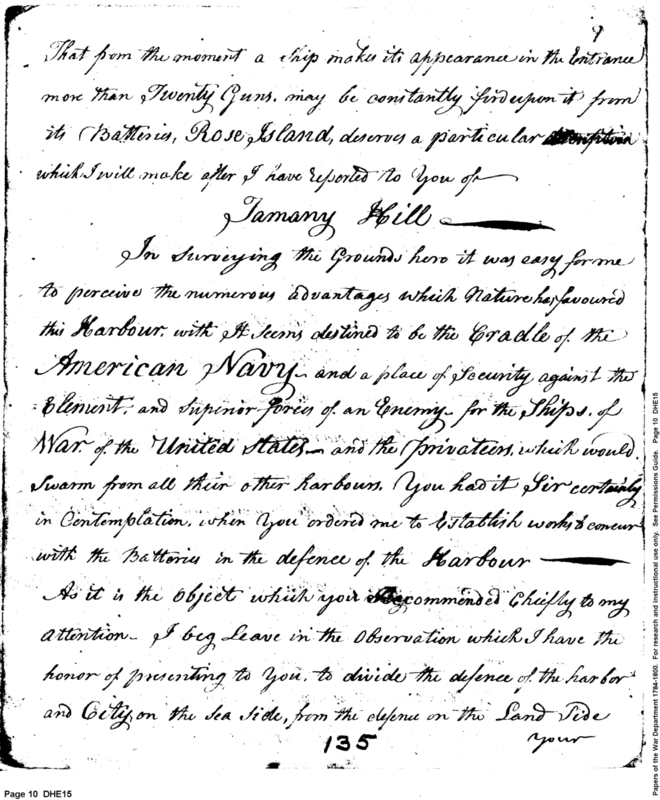 9
That from the moment a Ship makes its appearance in the Entrance
more than Twenty Guns, may be constantly fired upon it from
its Batteries, Rose Island, deserves a particular
which I will make after I have reported to You of
Tamany Hill
In Surveying the Grounds here it was easy for me
to perceive the numerous advantages which Nature has favoured
this Harbour, with It Seems destined to be the Cradle of the
American Navy and a place of Security against the
Element, and Superior forces of an Enemy for the Ships, of
War, of the United States and the privateers, which would,
Swarm from all their other harbours, You had it Sir certainly
in Contemplation, when You ordered me to Establish works to concur
with the Batteries in the defence of the Harbour
As it is the Object which you Recommended Chiefly to my
attention I beg Leave in the Observation which I have the
honor of presenting to You, to divide the defence of the harbor
and City, on the Sea Side, from the defence on the Land Side
your
135
Page 10 DHE15
Papers of the War Department 1784-1800. For research and instructional use only. See Permissions Guide. Page 10 DHE15